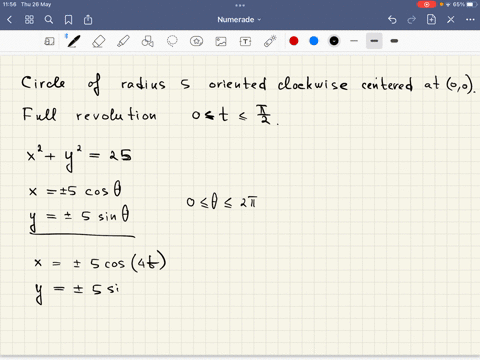 11:56 Thu 26 May
65%
Numerade
Circle of radius 5 oriented clockwise centered at (0,0).
Full revolution 0 ≤ t ≤ π/2.
x² + y² = 25
x = ±5 cos θ
y = ± 5 sin θ
0 ≤ θ ≤ 2π
x = ± 5 cos (4t)
y = ± 5 si